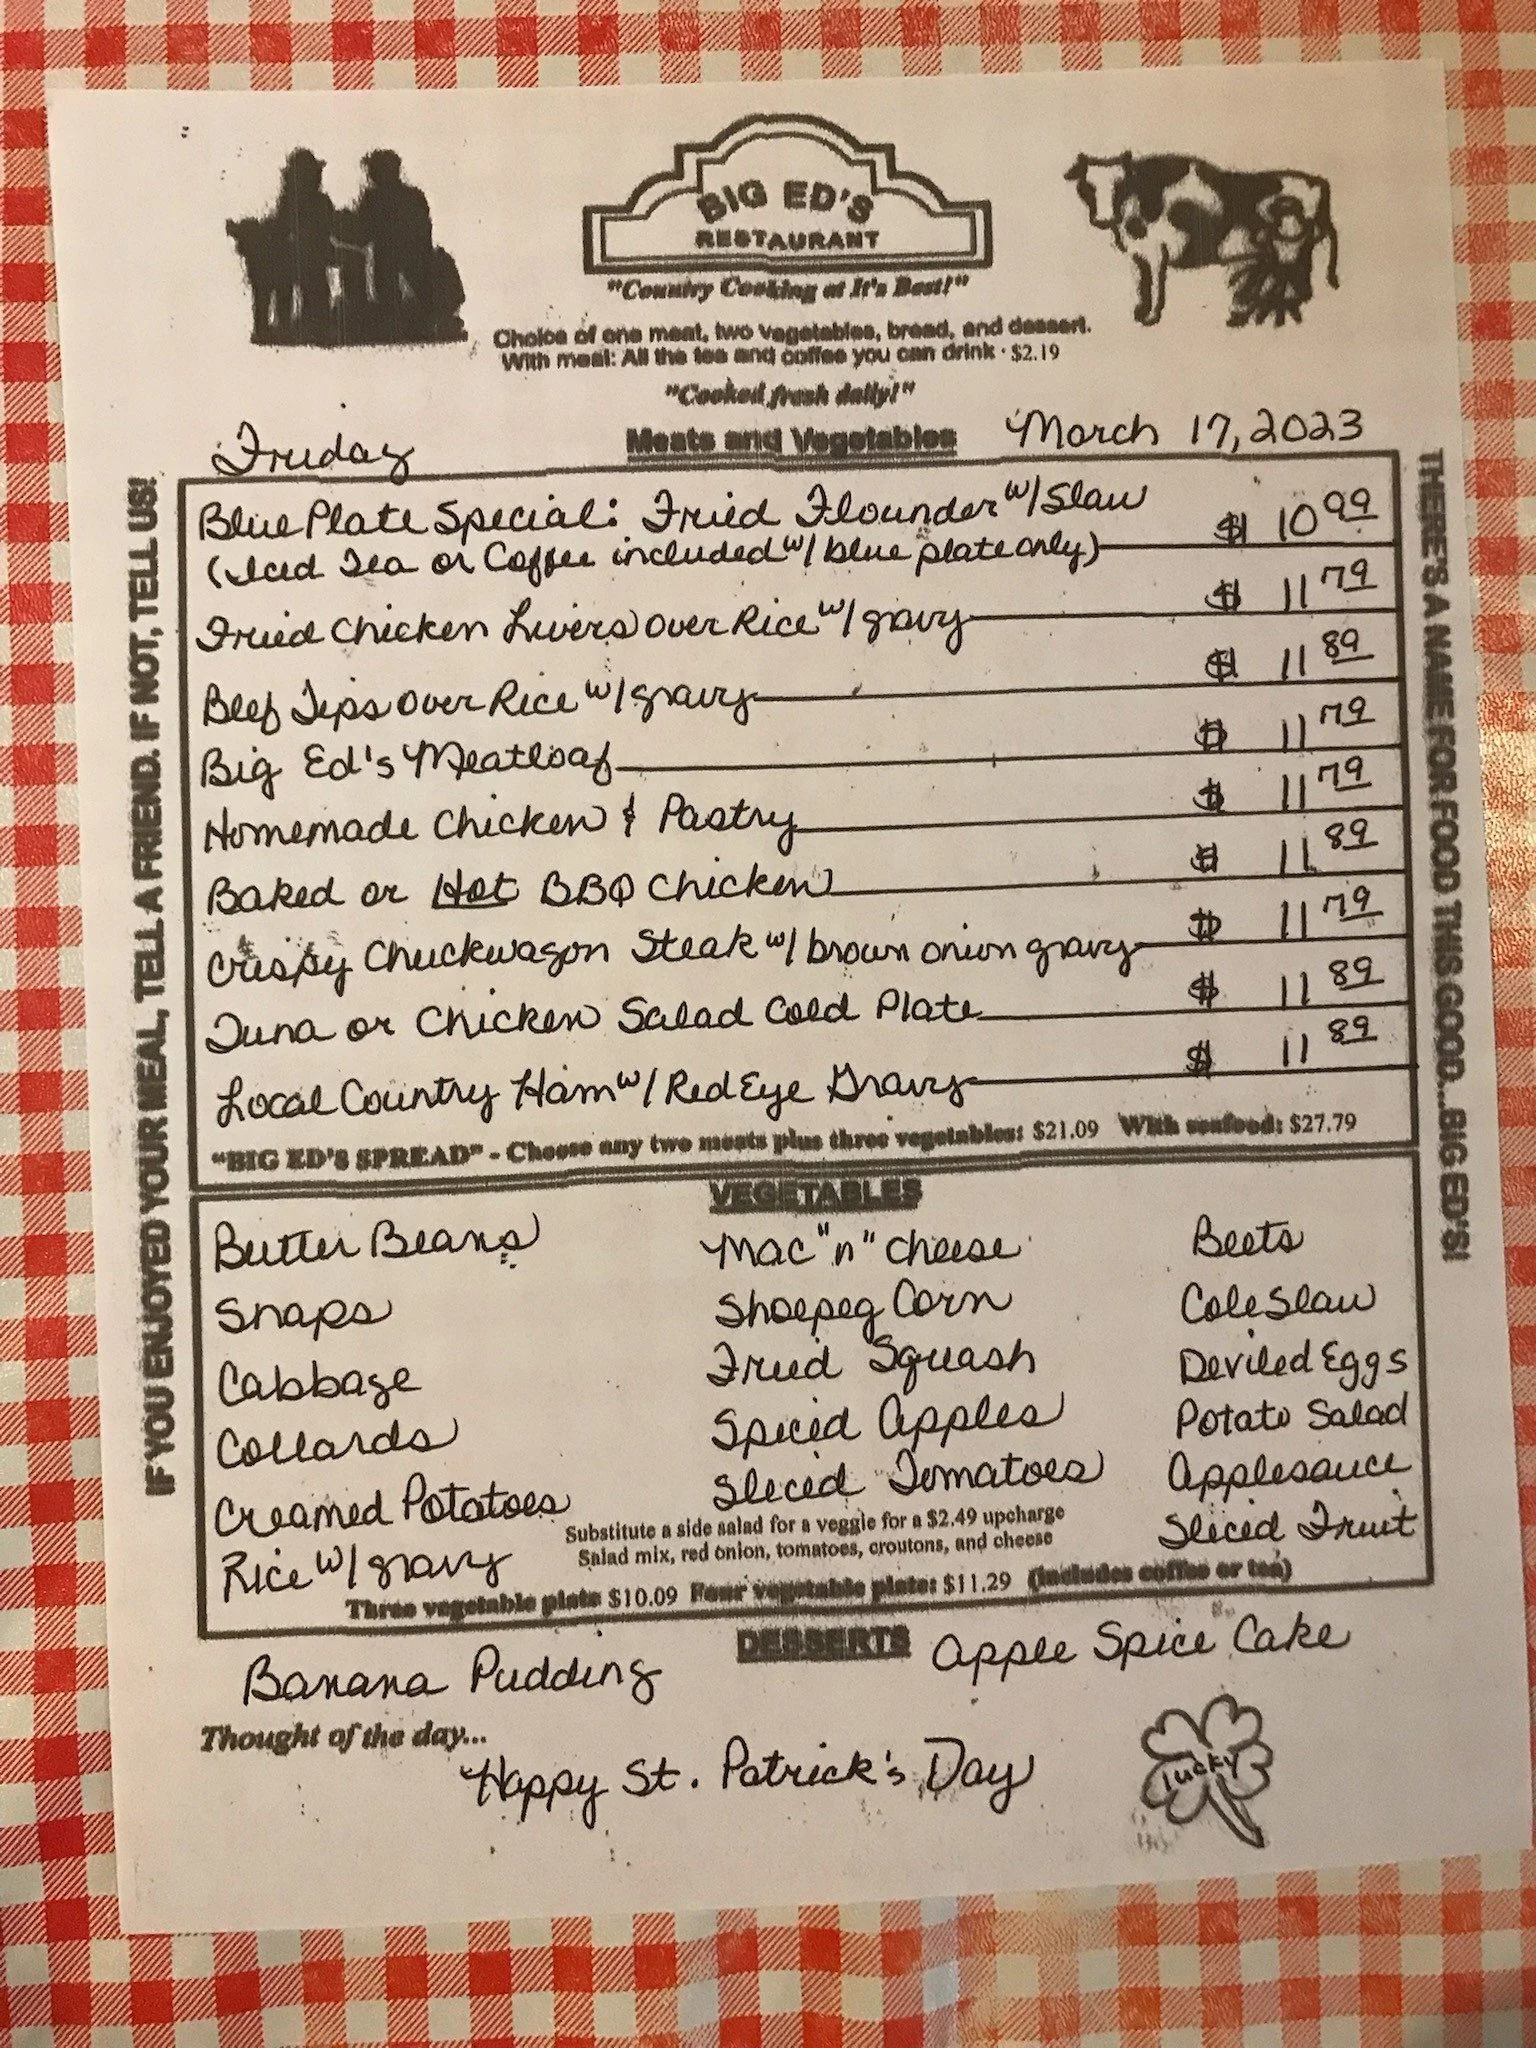 BIG ED'S
RESTAURANT
"Country Cooking at It's Best!"
Choice of one meat, two vegetables, bread, and dessert.
With meal: All the tea and coffee you can drink · $2.19
"Cooked fresh daily!"
Friday Meats and Vegetables March 17, 2023
IF YOU ENJOYED YOUR MEAL, TELL A FRIEND. IF NOT, TELL US!
THERE'S A NAME FOR FOOD THIS GOOD...BIG ED'S!
Blue Plate Special: Fried Flounder w/ Slaw $ 10.99
(Iced Tea or Coffee included w/ blue plate only)
Fried Chicken Livers over Rice w/ gravy $ 11 79
Beef Tips over Rice w/ gravy $ 11 89
Big Ed's Meatloaf $ 11 79
Homemade Chicken & Pastry $ 11 79
Baked or Hot BBQ Chicken $ 11 89
Crispy Chuckwagon Steak w/ brown onion gravy $ 11 79
Tuna or Chicken Salad Cold Plate $ 11 89
Local Country Ham w/ Red Eye Gravy $ 11 89
"BIG ED'S SPREAD" - Choose any two meats plus three vegetables: $21.09 With seafood: $27.79
VEGETABLES
Butter Beans Mac "n" cheese Beets
Snaps Shoepeg Corn Cole Slaw
Cabbage Fried Squash Deviled Eggs
Collards Spiced Apples Potato Salad
Creamed Potatoes Sliced Tomatoes Applesauce
Rice w/ gravy Sliced Fruit
Substitute a side salad for a veggie for a $2.49 upcharge
Salad mix, red onion, tomatoes, croutons, and cheese
Three vegetable plate $10.09 Four vegetable plate: $11.29 (includes coffee or tea)
DESSERTS
Banana Pudding Apple Spice Cake
Thought of the day...
Happy St. Patrick's Day
lucky